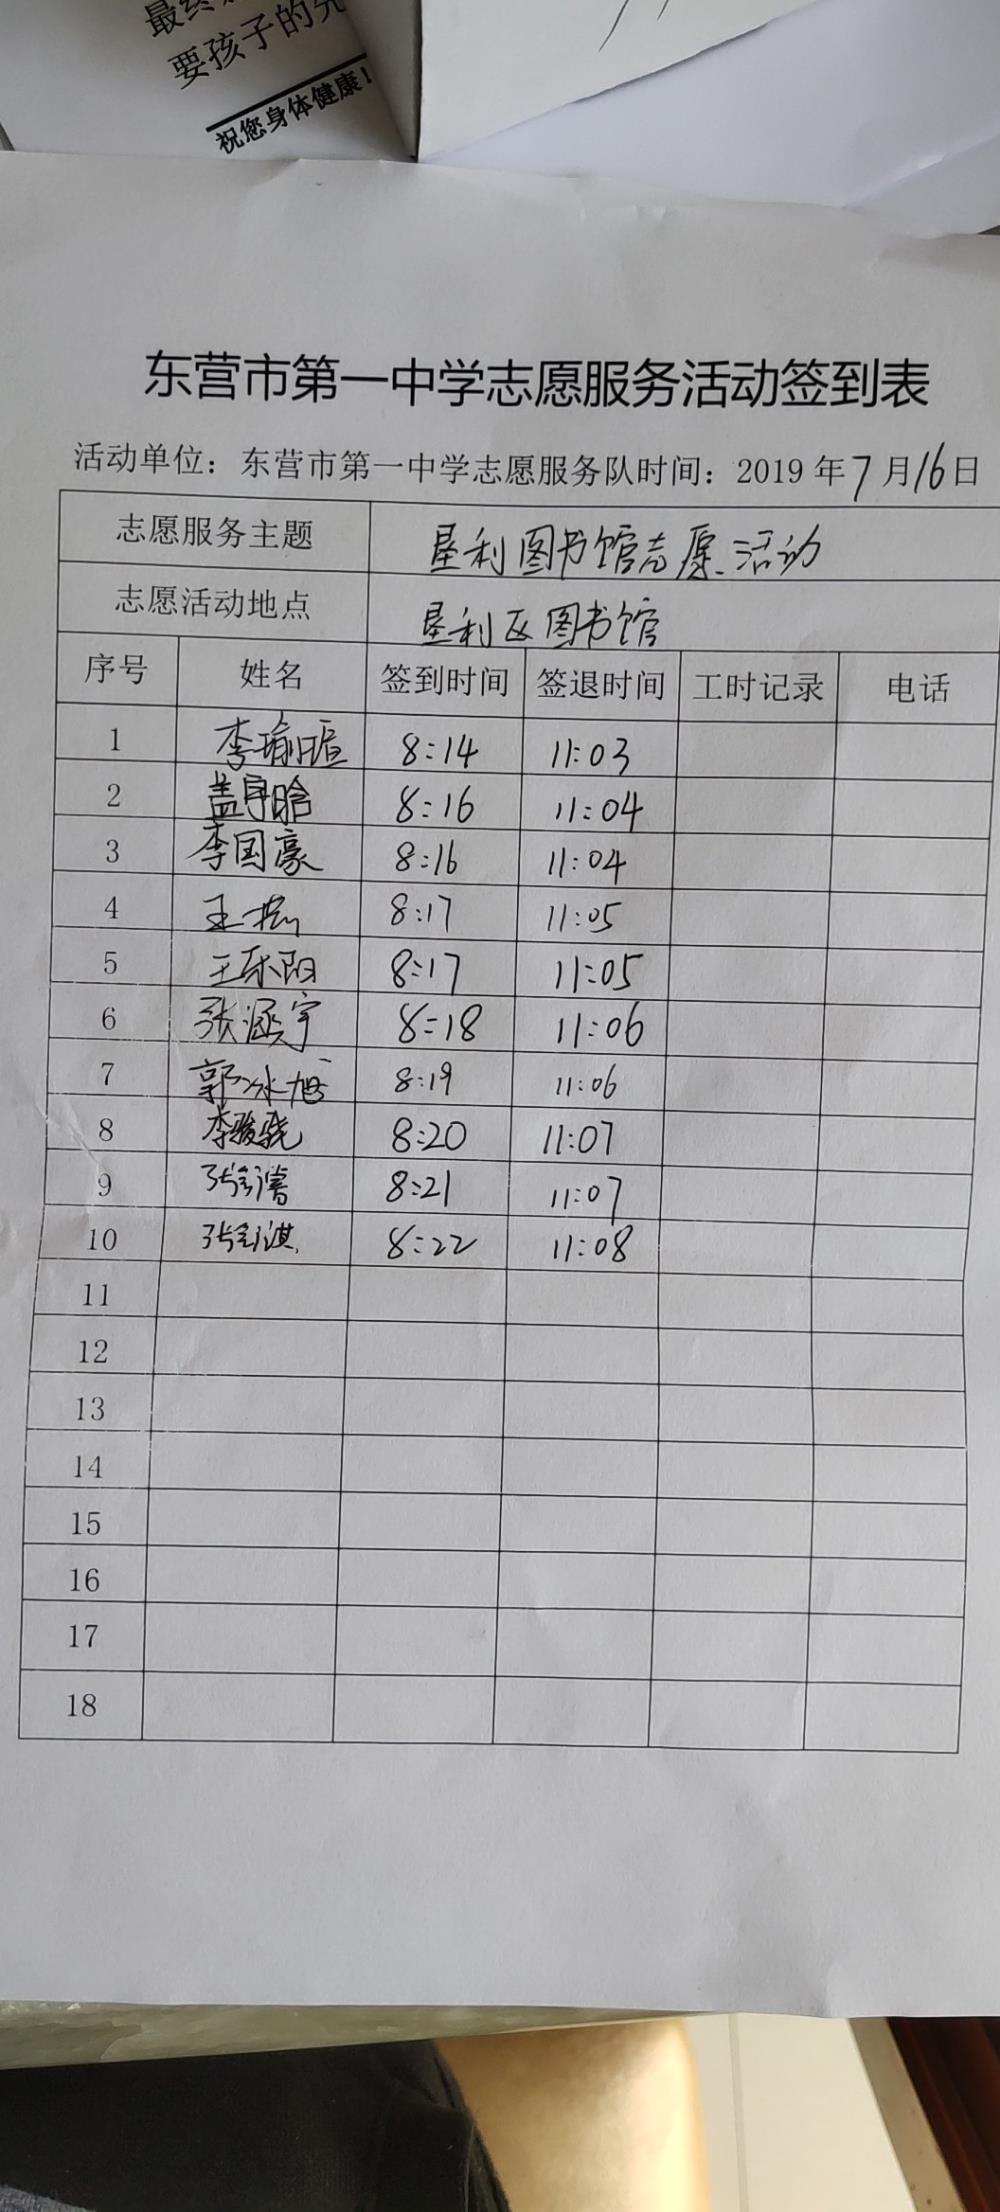 最终
要孩子的
祝您身体健康!
东营市第一中学志愿服务活动签到表
活动单位：东营市第一中学志愿服务队时间：2019年7月16日
志愿服务主题 垦利图书馆志愿活动
志愿活动地点 垦利区图书馆
序号 姓名 签到时间 签退时间 工时记录 电话
1 李瑜瑄 8:14 11:03
2 盖宇晗 8:16 11:04
3 李国豪 8:16 11:04
4 王 8:17 11:05
5 王乐阳 8:17 11:05
6 张涵宇 8:18 11:06
7 郭冰旭 8:19 11:06
8 李骏骁 8:20 11:07
9 张 8:21 11:07
10 张 8:22 11:08
11
12
13
14
15
16
17
18